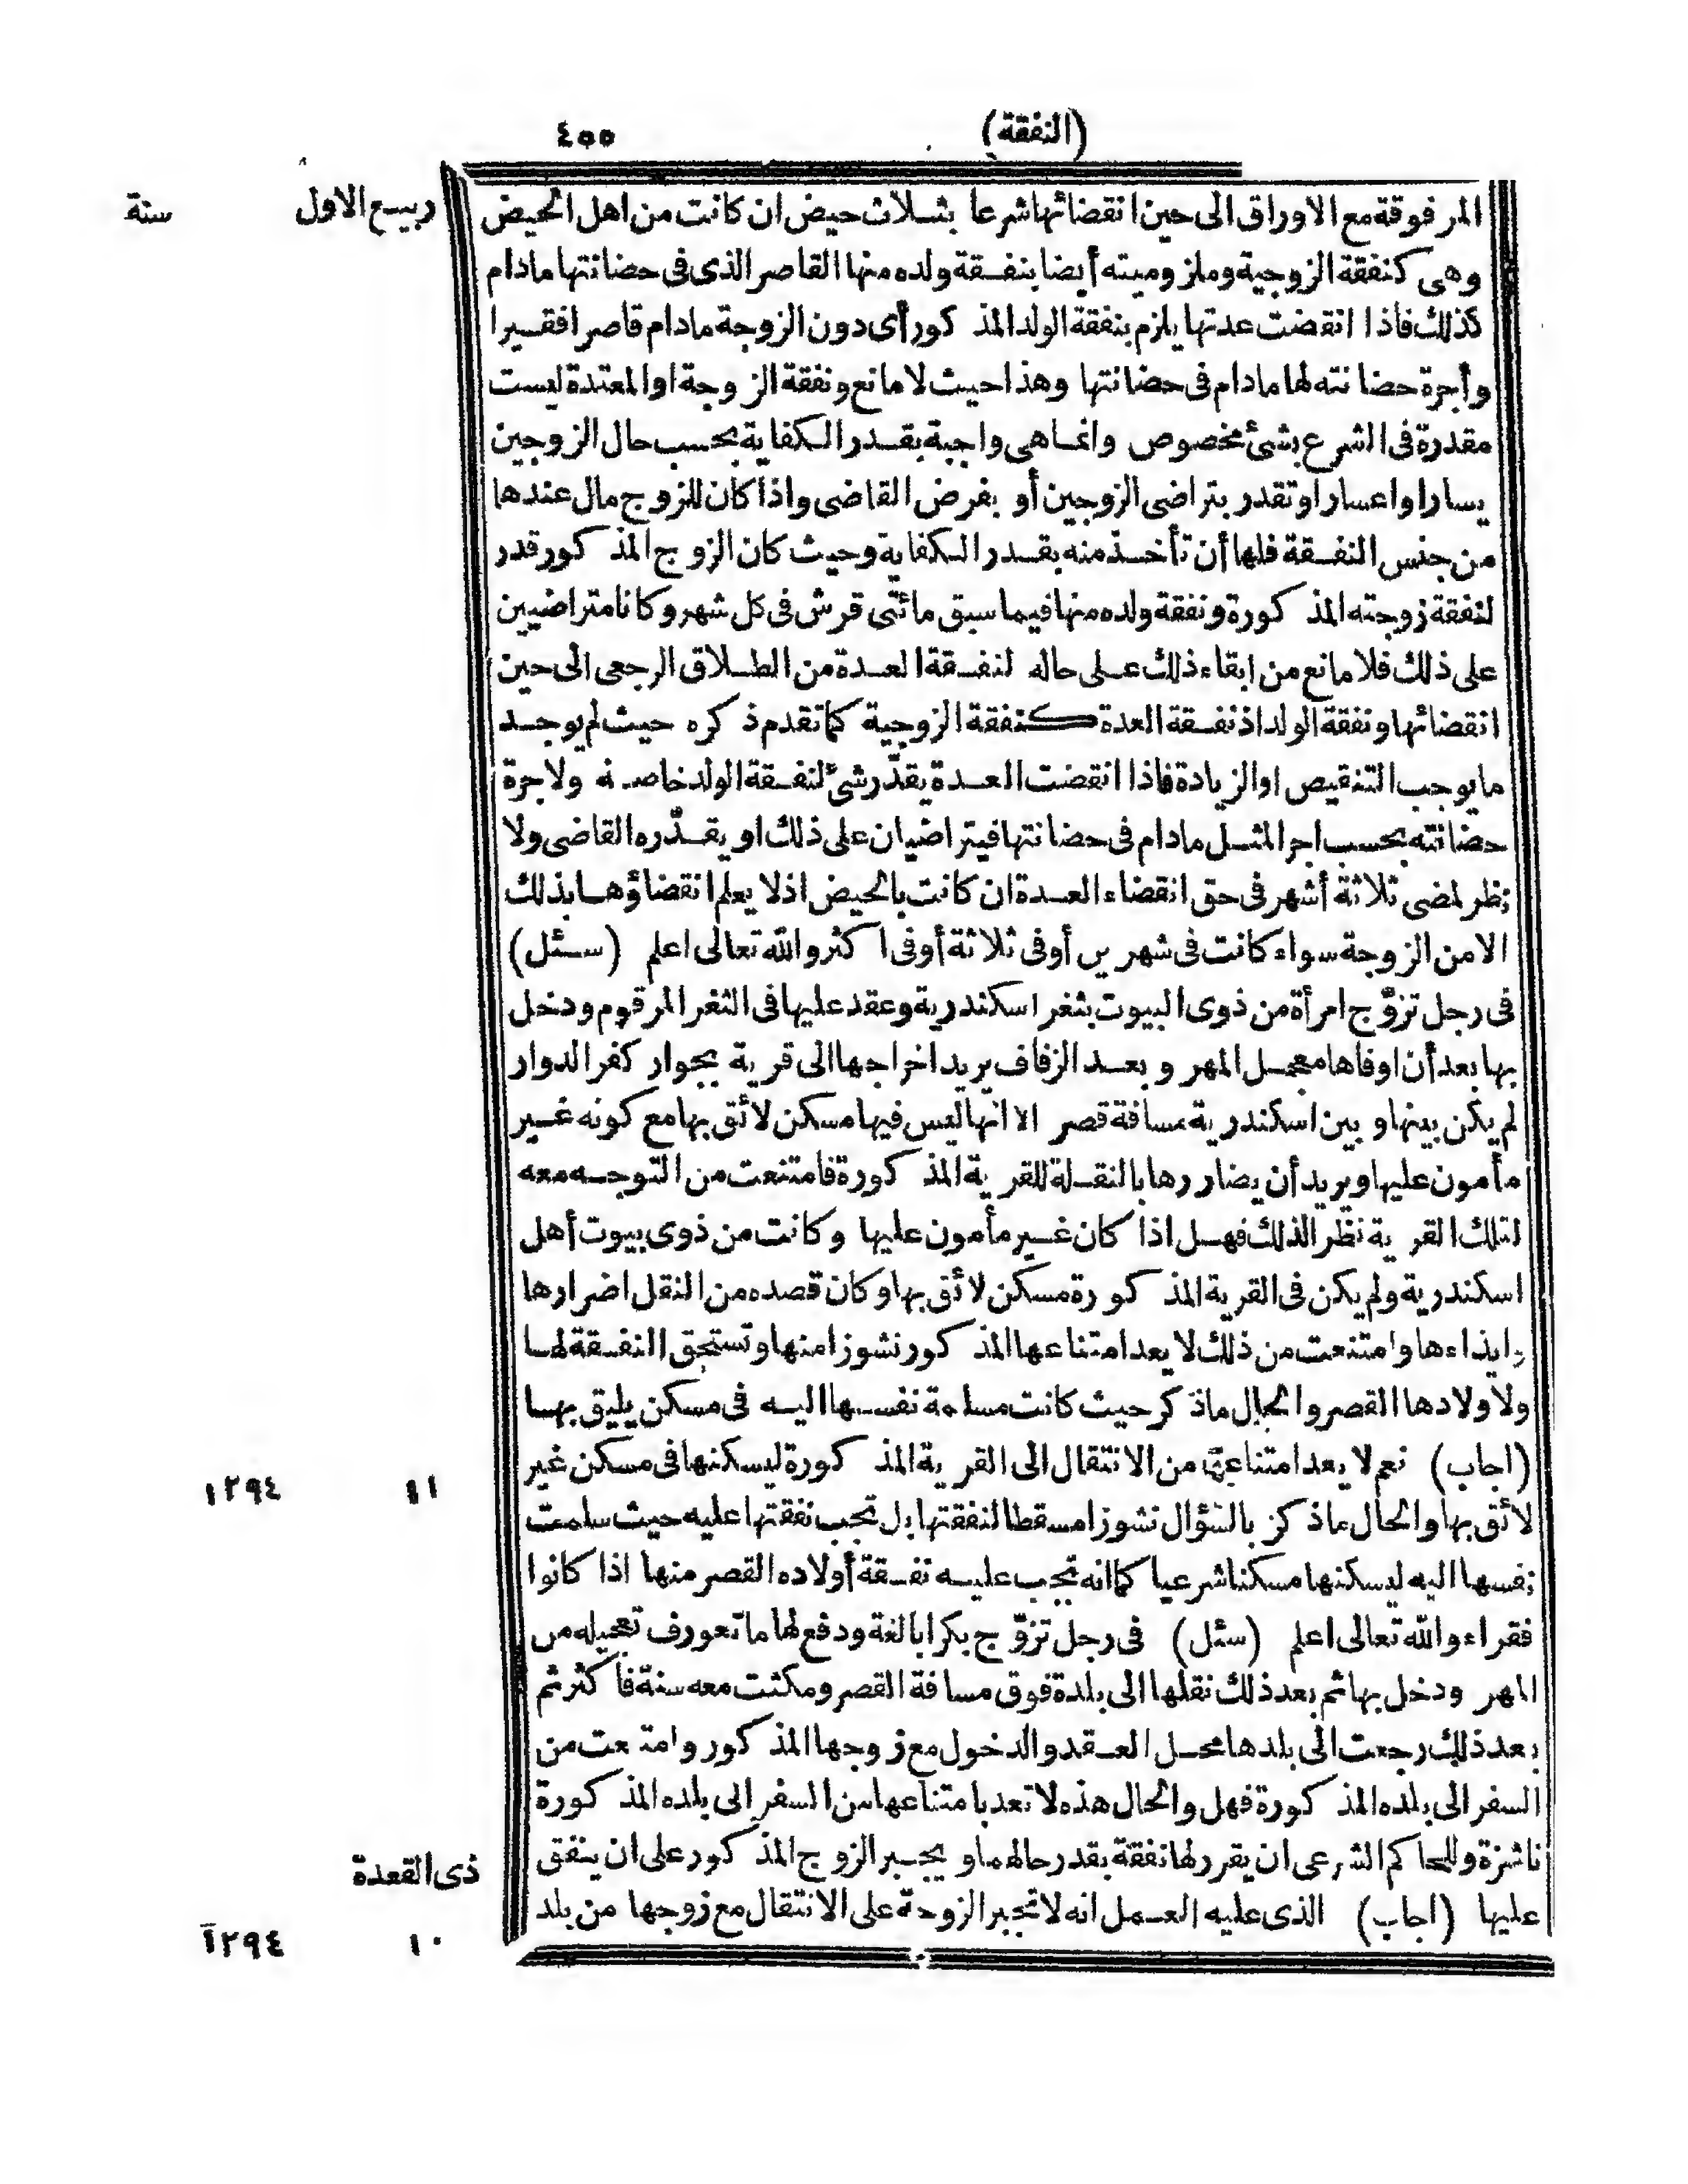 (النفقة) ٤٥٥
ربيع الاول سنة
المرفوقة مع الاوراق الى حين انقضائها شرعا بثلاث حيض ان كانت من اهل الحيض
وهى كنفقة الزوجية وملزوميته أيضا بنفقة ولده منها القاصر الذى فى حضانتها مادام
كذلك فاذا انقضت عدتها يلزم بنفقة الولد المذكور أى دون الزوجة مادام قاصرا فقيرا
وأجرة حضانته لها مادام فى حضانتها وهذا حيث لا مانع ونفقة الزوجة او المعتدة ليست
مقدرة فى الشرع بشئ مخصوص وانما هى واجبة بقدر الكفاية بحسب حال الزوجين
يسارا واعسارا وتقدر بتراضى الزوجين أو بفرض القاضى واذا كان للزوج مال عندها
من جنس النفقة فلها أن تأخذ منه بقدر الكفاية وحيث كان الزوج المذكور قدر
لنفقة زوجته المذكورة ونفقة ولده منها فيما سبق مائتى قرش فى كل شهر وكانا متراضيين
على ذلك فلا مانع من ابقاء ذلك على حاله لنفقة العدة من الطلاق الرجعى الى حين
انقضائها ونفقة الولد اذ نفقة العدة كنفقة الزوجية كما تقدم ذكره حيث لم يوجد
ما يوجب التنقيص او الزيادة فاذا انقضت العدة يقدّر شئ لنفقة الولد خاصة ولاجرة
حضانته بحسب اجر المثل مادام فى حضانتها فيتراضيان على ذلك او يقدّره القاضى ولا
نظر لمضى ثلاثة أشهر فى حق انقضاء العدة ان كانت بالحيض اذ لا يعلم انقضاؤها بذلك
الا من الزوجة سواء كانت فى شهرين أو فى ثلاثة أو فى اكثر والله تعالى اعلم (سئل)
فى رجل تزوّج امرأة من ذوى البيوت بثغر اسكندرية وعقد عليها فى الثغر المرقوم ودخل
بها بعد أن اوفاها معجل المهر وبعد الزفاف يريد اخراجها الى قرية بجوار كفر الدوار
لم يكن بينها وبين اسكندرية مسافة قصر الا انها ليس فيها مسكن لائق بها مع كونه غير
مأمون عليها ويريد أن يضاررها بالنقلة للقرية المذكورة فامتنعت من التوجه معه
لتلك القرية نظرا لذلك فهل اذا كان غير مأمون عليها وكانت من ذوى بيوت أهل
اسكندرية ولم يكن فى القرية المذكورة مسكن لائق بها وكان قصده من النقل اضرارها
وايذاءها وامتنعت من ذلك لا يعد امتناعها المذكور نشوزا منها وتستحق النفقة لها
ولاولادها القصر والحال ماذكر حيث كانت مسلمة نفسها اليه فى مسكن يليق بها
(اجاب) نعم لا يعد امتناعها من الانتقال الى القرية المذكورة ليسكنها فى مسكن غير
١١ ١٢٩٤
لائق بها والحال ماذكر بالسؤال نشوزا مسقطا لنفقتها بل تجب نفقتها عليه حيث سلمت
نفسها اليه ليسكنها مسكنا شرعيا كما انه تجب عليه نفقة أولاده القصر منها اذا كانوا
فقراء والله تعالى اعلم (سئل) فى رجل تزوّج بكرا بالغة ودفع لها ما تعورف تعجيله من
المهر ودخل بها ثم بعد ذلك نقلها الى بلدة فوق مسافة القصر ومكثت معه سنة فأكثر ثم
بعد ذلك رجعت الى بلدها محل العقد والدخول مع زوجها المذكور وامتنعت من
السفر الى بلده المذكورة فهل والحال هذه لا تعد بامتناعها من السفر الى بلده المذكورة
ناشزة وللحاكم الشرعى ان يقرر لها نفقة بقدر حالهما ويجبر الزوج المذكور على ان ينفق
ذى القعدة
عليها (اجاب) الذى عليه العمل انه لا تجبر الزوجة على الانتقال مع زوجها من بلد
١٠ ١٢٩٤